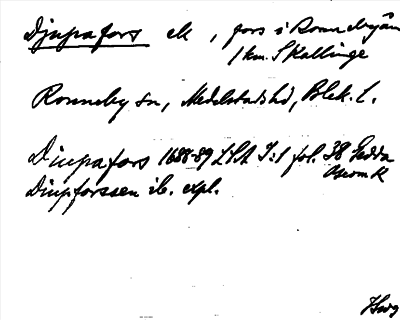 Djupafors ek, fors i Ronnebyån
1 km. S Kallinge
Ronneby sn, Medelstads hd, Blek. l.
Djupafors 1688-89 LSA I:1 fol. 38 Sedda
Djupforssen ib. expl.